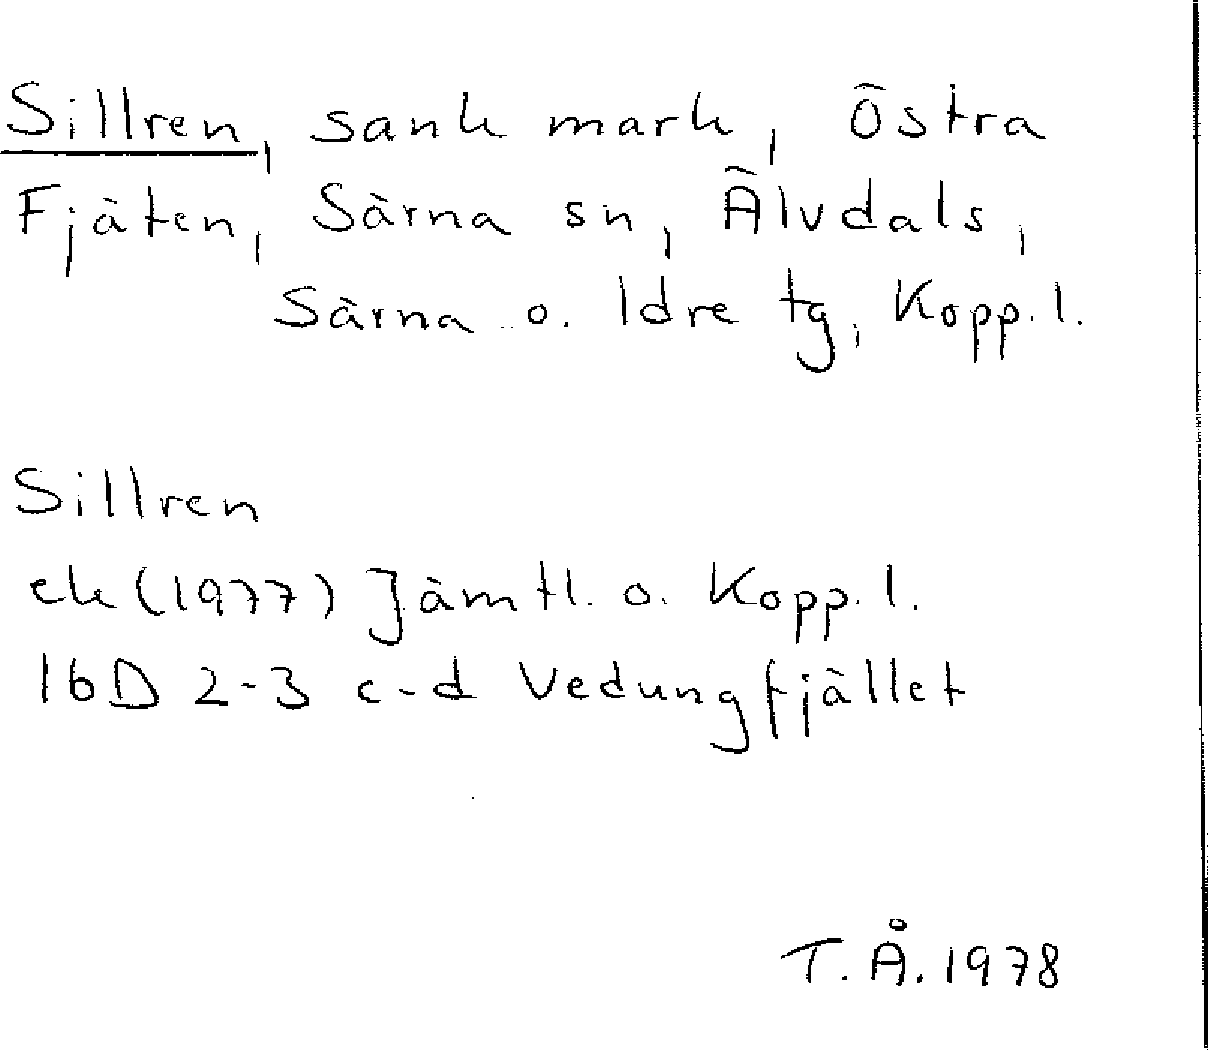 Sillren, sank mark, Östra
Fjäten, Särna sn, Älvdals,
Särna o. Idre tg, Kopp. l.
Sillren
ek (1977) Jämtl. o. Kopp. l.
16D 2-3 c-d Vedungfjället
T. Å. 1978